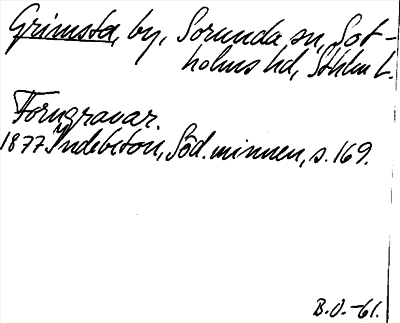 Grimsta, by, Sorunda sn, Sot-
holms hd, Sthlm L.
Forngravar.
1877 Indebetou, Söd. minnen, s. 169.
B.O. -61.